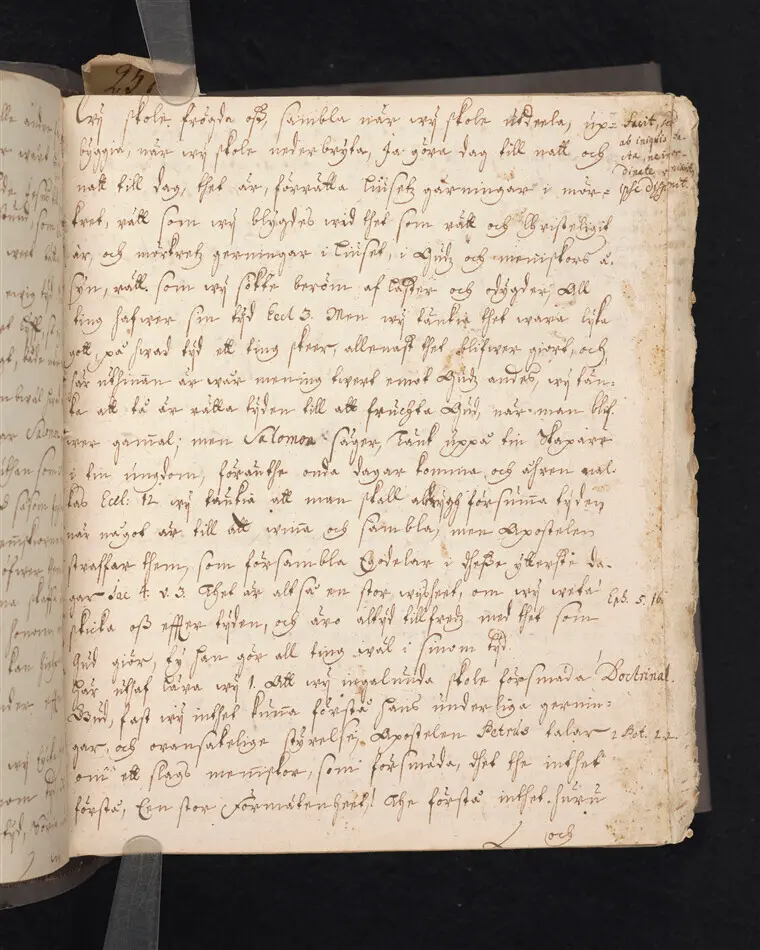 25.
wij skole frögda oss, sambla när wij skole utdeela, up=
byggia, när wij skole nederbryta, Ja göra dag till natt och
natt till dag, thet är, förrätta liusetz gärningar i mör=
kret, rätt som wij blygdes wid thet som rätt och Christeligit
är, och mörkretz gerningar i liuset, i Gudz och menniskors å=
syn, rätt som wij sökte beröm af laster och odygder. All
ting hafwer sin tijd Eccl 3. Men wij tänkia thet wara lijka
gott, på hwad tijd ett ting skeer, allenast thet blifwer giort, och
här uthinnan är wår mening twert emot Gudz andes, wij tän=
kia att tå är rätta tijden till att fruchta Gud, när man blif=
wer gammal; men Salomon säger, Tänk uppå tin Skapare
i tin ungdom, föränthe onda dagar komma, och åhren nal=
kas Eccl: 12 wij tänkia att man skall försumma tijden
när något är till att winna och sambla, men Apostelen
straffar them, som försambla Egodelar i thesse ytterste da=
gar Jac 4. v. 3. Thet är altså en stor wijsheet, om wij weta
skicka oss effter tijden, och äro altijd tillfredz med thet som
Gud giör, ty han gör all ting wäl i sinom tijd.
Här uthaf lära wij 1. Att wij ingalunda skole försmäda
Gud, fast wij inthet kunna förstå hans underliga gernin=
gar, och oransakelige styrelse, Apostelen Petrus talar
om ett slags menniskor, som försmäda, thet the inthet
förstå, Een stor Förmätenheet! The förstå inthet huru
och
facit, sed
ab
ipse
Eph. 5. 16
Doctrinal.
2 Pet. 2